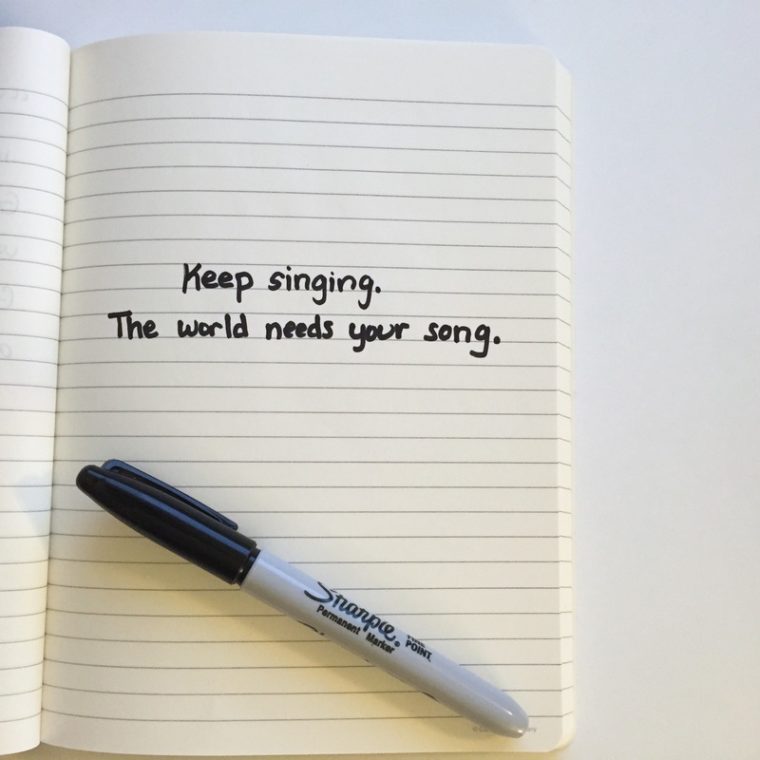 Keep singing.
The world needs your song.
Sharpie®
Permanent Marker
FINE POINT